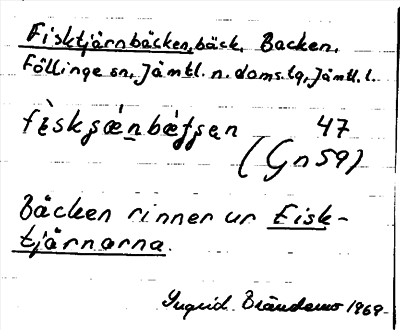 Fisktjärnbäcken, bäck, Backen.
Föllinge sn, Jämtl. n. doms.lq, Jämtl. l.
fɪ̀skʂæ̀nbǽʧʂɛn 47
(Gn 59)
Bäcken rinner ur Fisk-
tjärnarna.
Ingrid Brändemo 1969